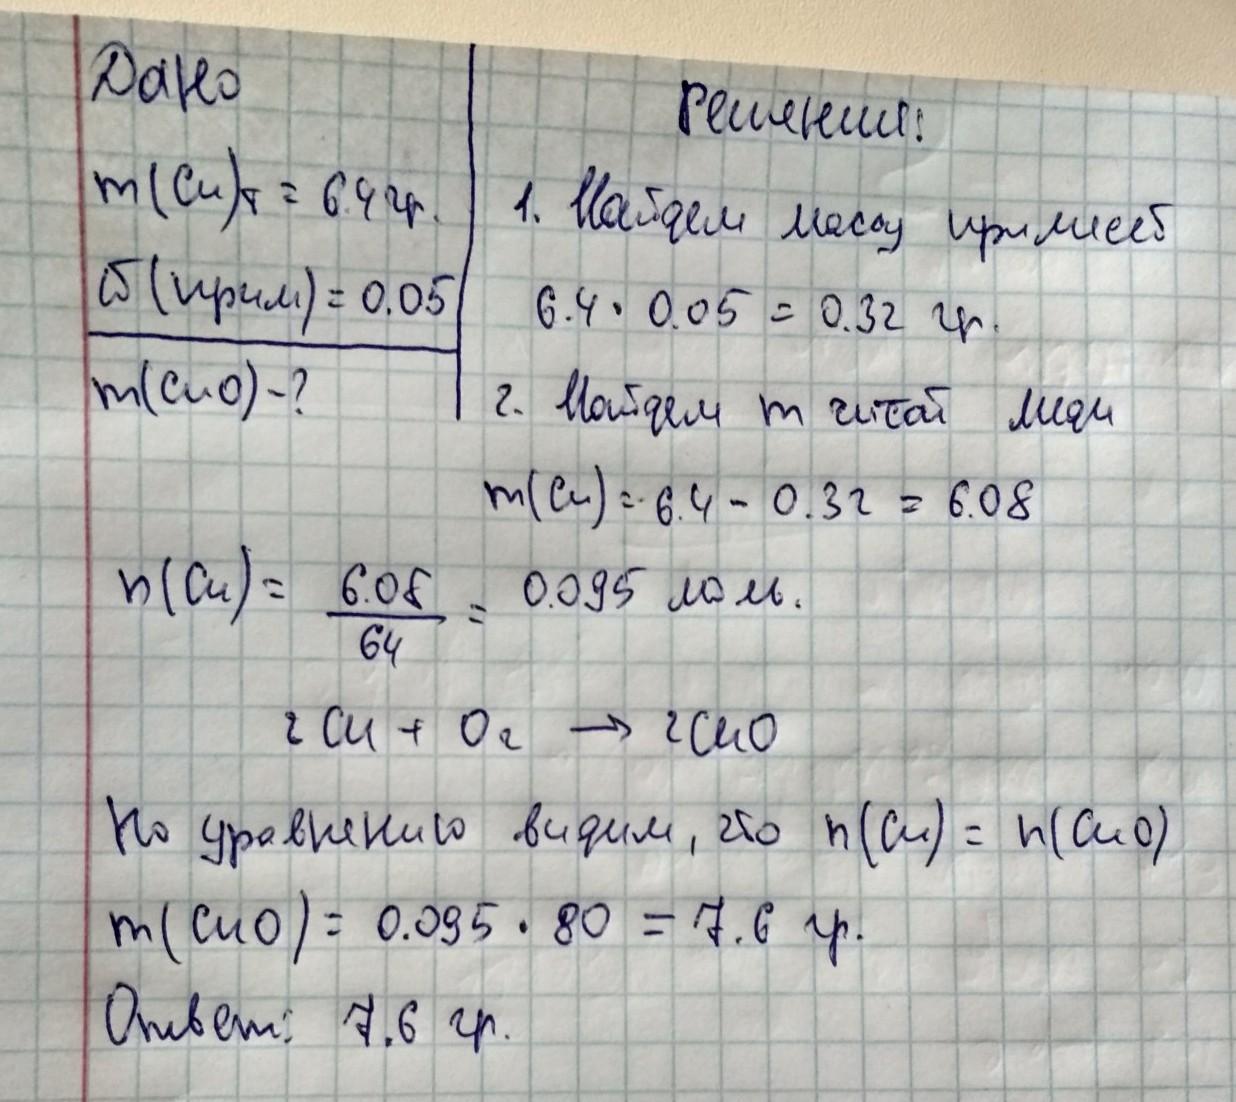 Дано
m(Cu)т = 6.4 гр.
ω(прим) = 0.05
m(CuO) - ?
Решения:
1. Найдем массу примесей
6.4 · 0.05 = 0.32 гр.
2. Найдем m чистой меди
m(Cu) = 6.4 - 0.32 = 6.08
n(Cu) = 6.08/64 = 0.095 моль.
2Cu + O₂ → 2CuO
По уравнению видим, что n(Cu) = n(CuO)
m(CuO) = 0.095 · 80 = 7.6 гр.
Ответ: 7.6 гр.